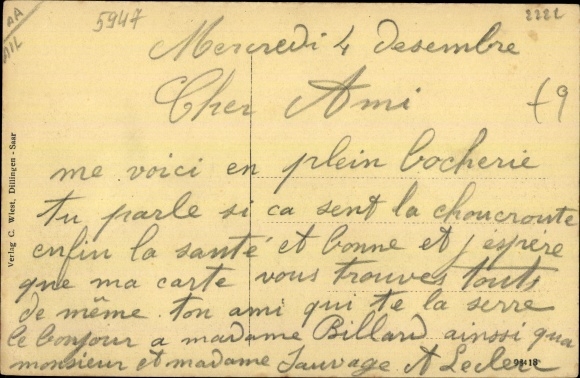 AA
AIL
5947
2222
Mercredi 4 desembre
Cher Ami
f9
me voici en plein bocherie
tu parle si ca sent la choucroute
enfin la santé et bonne et j'éspére
que ma carte vous trouves touts
de même. ton ami qui te la serre
le bonjour a madame Billard ainssi qua
monsieur et madame Sauvage A Leclerc
Verlag C. Wiest, Dillingen - Saar